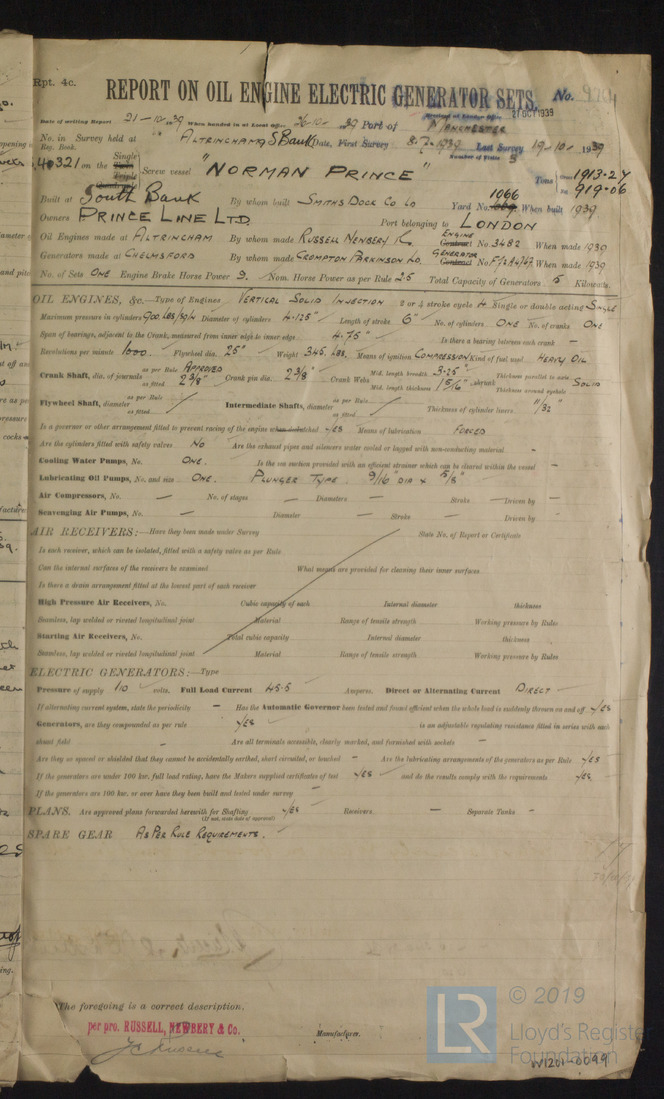 Rpt. 4c.
REPORT ON OIL ENGINE ELECTRIC GENERATOR SETS. No.
Received at London Office 21 OCT 1939
Date of writing Report 21-10-1939 When handed in at Local Office 26-10-39 Port of MANCHESTER
No. in Reg. Book. Survey held at ALTRINCHAM & S BANK Date, First Survey 8-7-1939 Last Survey 19-10-1939
Number of Visits 3
40321 on the Single Twin Triple Quadruple Screw vessel "NORMAN PRINCE" Tons Gross 1913.27 Net 919.06
Built at South Bank By whom built SMITHS DOCK Co Lo Yard No. 1066 When built 1939
Owners PRINCE LINE LTD. Port belonging to LONDON
Oil Engines made at ALTRINCHAM By whom made RUSSELL NEWBERY & Co. ENGINE Contract No. 3482 When made 1939
Generators made at CHELMSFORD By whom made CROMPTON PARKINSON LD. GENERATOR Contract No. When made 1939
No. of Sets ONE Engine Brake Horse Power 9. Nom. Horse Power as per Rule 2.5 Total Capacity of Generators 5 Kilowatts.
OIL ENGINES, &c.—Type of Engines VERTICAL SOLID INJECTION 2 or 4 stroke cycle 4 Single or double acting SINGLE
Maximum pressure in cylinders 900 LBS/SQ.IN Diameter of cylinders 4.125" Length of stroke 6" No. of cylinders ONE No. of cranks ONE
Span of bearings, adjacent to the Crank, measured from inner edge to inner edge 4.75" Is there a bearing between each crank —
Revolutions per minute 1000. Flywheel dia. 25" Weight 345 LBS. Means of ignition COMPRESSION Kind of fuel used HEAVY OIL
Crank Shaft, dia. of journals as per Rule APPROVED as fitted 2 3/8" Crank pin dia. 2 3/8" Crank Webs Mid. length breadth 3.25" Mid. length thickness 1 5/16" shrunk Thickness parallel to axis Thickness around eyehole SOLID
Flywheel Shaft, diameter as per Rule as fitted Intermediate Shafts, diameter as per Rule as fitted Thickness of cylinder liners 11/32"
Is a governor or other arrangement fitted to prevent racing of the engine when declutched YES Means of lubrication FORCED
Are the cylinders fitted with safety valves NO Are the exhaust pipes and silencers water cooled or lagged with non-conducting material —
Cooling Water Pumps, No. ONE. Is the sea suction provided with an efficient strainer which can be cleared within the vessel —
Lubricating Oil Pumps, No. and size ONE. PLUNGER TYPE. 9/16" DIA x 5/8"
Air Compressors, No. — No. of stages — Diameters — Stroke — Driven by —
Scavenging Air Pumps, No. — Diameter — Stroke — Driven by —
AIR RECEIVERS:—Have they been made under Survey State No. of Report or Certificate
Is each receiver, which can be isolated, fitted with a safety valve as per Rule
Can the internal surfaces of the receivers be examined What means are provided for cleaning their inner surfaces
Is there a drain arrangement fitted at the lowest part of each receiver
High Pressure Air Receivers, No. Cubic capacity of each Internal diameter thickness
Seamless, lap welded or riveted longitudinal joint Material Range of tensile strength Working pressure by Rules
Starting Air Receivers, No. Total cubic capacity Internal diameter thickness
Seamless, lap welded or riveted longitudinal joint Material Range of tensile strength Working pressure by Rules
ELECTRIC GENERATORS:—Type
Pressure of supply 110 volts. Full Load Current 45.5 Amperes. Direct or Alternating Current DIRECT
If alternating current system, state the periodicity — Has the Automatic Governor been tested and found efficient when the whole load is suddenly thrown on and off YES
Generators, are they compounded as per rule YES is an adjustable regulating resistance fitted in series with each
shunt field — Are all terminals accessible, clearly marked, and furnished with sockets —
Are they so spaced or shielded that they cannot be accidentally earthed, short circuited, or touched — Are the lubricating arrangements of the generators as per Rule YES
If the generators are under 100 kw. full load rating, have the Makers supplied certificates of test YES and do the results comply with the requirements YES
If the generators are 100 kw. or over have they been built and tested under survey —
PLANS. Are approved plans forwarded herewith for Shafting YES Receivers — Separate Tanks —
(If not, state date of approval)
SPARE GEAR AS PER RULE REQUIREMENTS.
The foregoing is a correct description,
per pro. RUSSELL, NEWBERY & Co.
Manufacturer.
LR
© 2019
Lloyd's Register
Foundation
W1201-0099